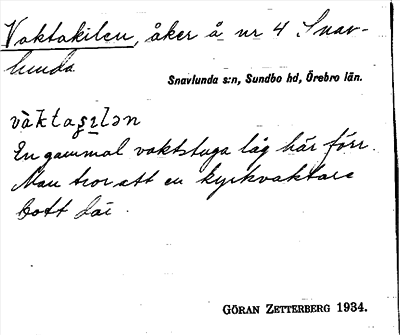 Vaktakilen, åker å nr 4 Snav-
lunda
Snavlunda s:n, Sundbo hd, Örebro län.
En gammal vaktstuga låg här förr.
Man tror att en kyrkvaktare
bott där.
GÖRAN ZETTERBERG 1934.